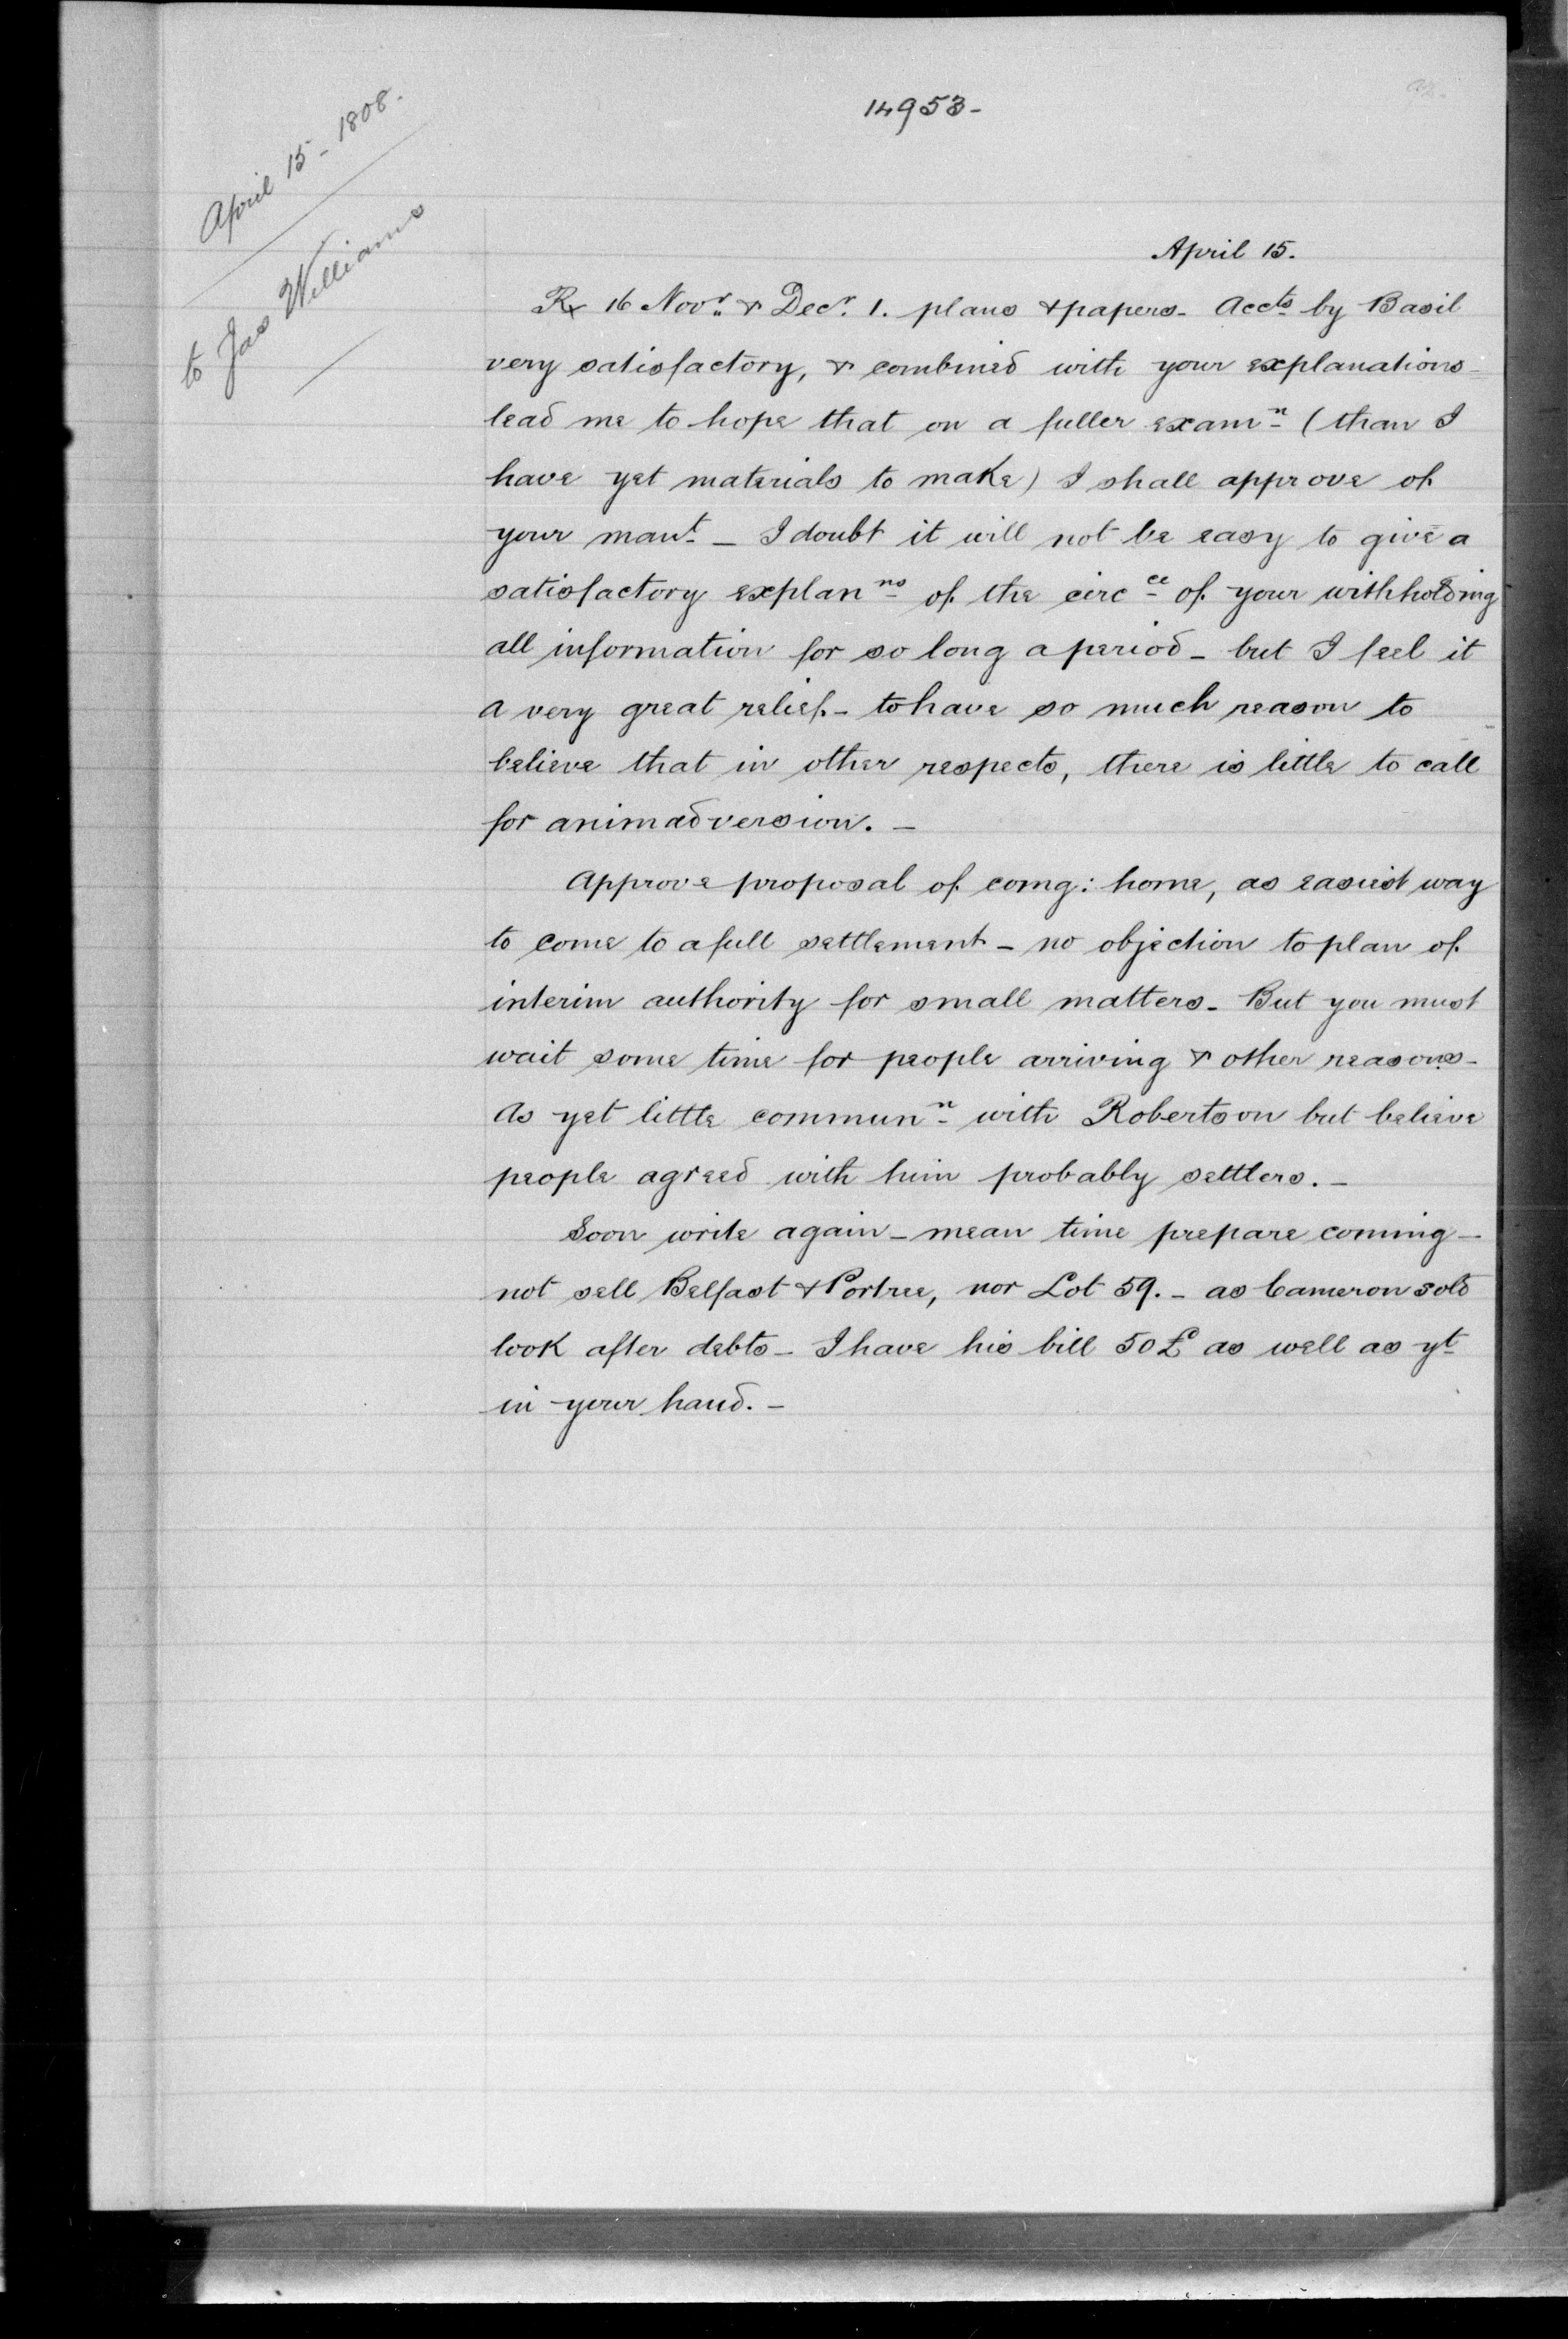 14953-
April 15-1808.
to Jas Williams
April 15.
Rx 16 Novr. & Decr. 1. plans & papers - Accts by Basil
very satisfactory, & combined with your explanations -
lead me to hope that on a fuller examn (than I
have yet materials to make) I shall approve of
your mant - I doubt it will not be easy to give a
satisfactory explanns of the circce of your withholding
all information for so long a period - but I feel it
a very great relief - to have so much reason to
believe that in other respects, there is little to call
for animadversion. -
Approve proposal of comg: home, as easiest way
to come to a full settlement - no objection to plan of
interim authority for small matters - But you must
wait some time for people arriving & other reasons -
As yet little communn with Robertson but believe
people agreed with him probably settlers. -
Soon write again - mean time prepare coming -
not sell Belfast & Portree, nor Lot 59. - as Cameron sold
look after debts - I have his bill 50£ as well as yt
in your hand. -